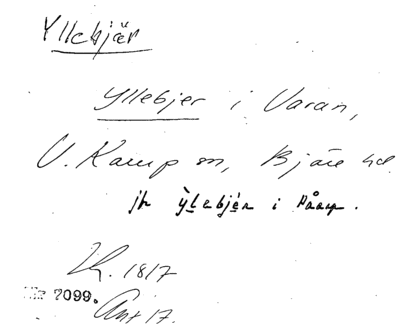 Yllebjär
Yllebjer i Varan,
V. Karup sn, Bjäre hd.
jfr ylebjér i Påarp.
1817
2099.
Ant 17.